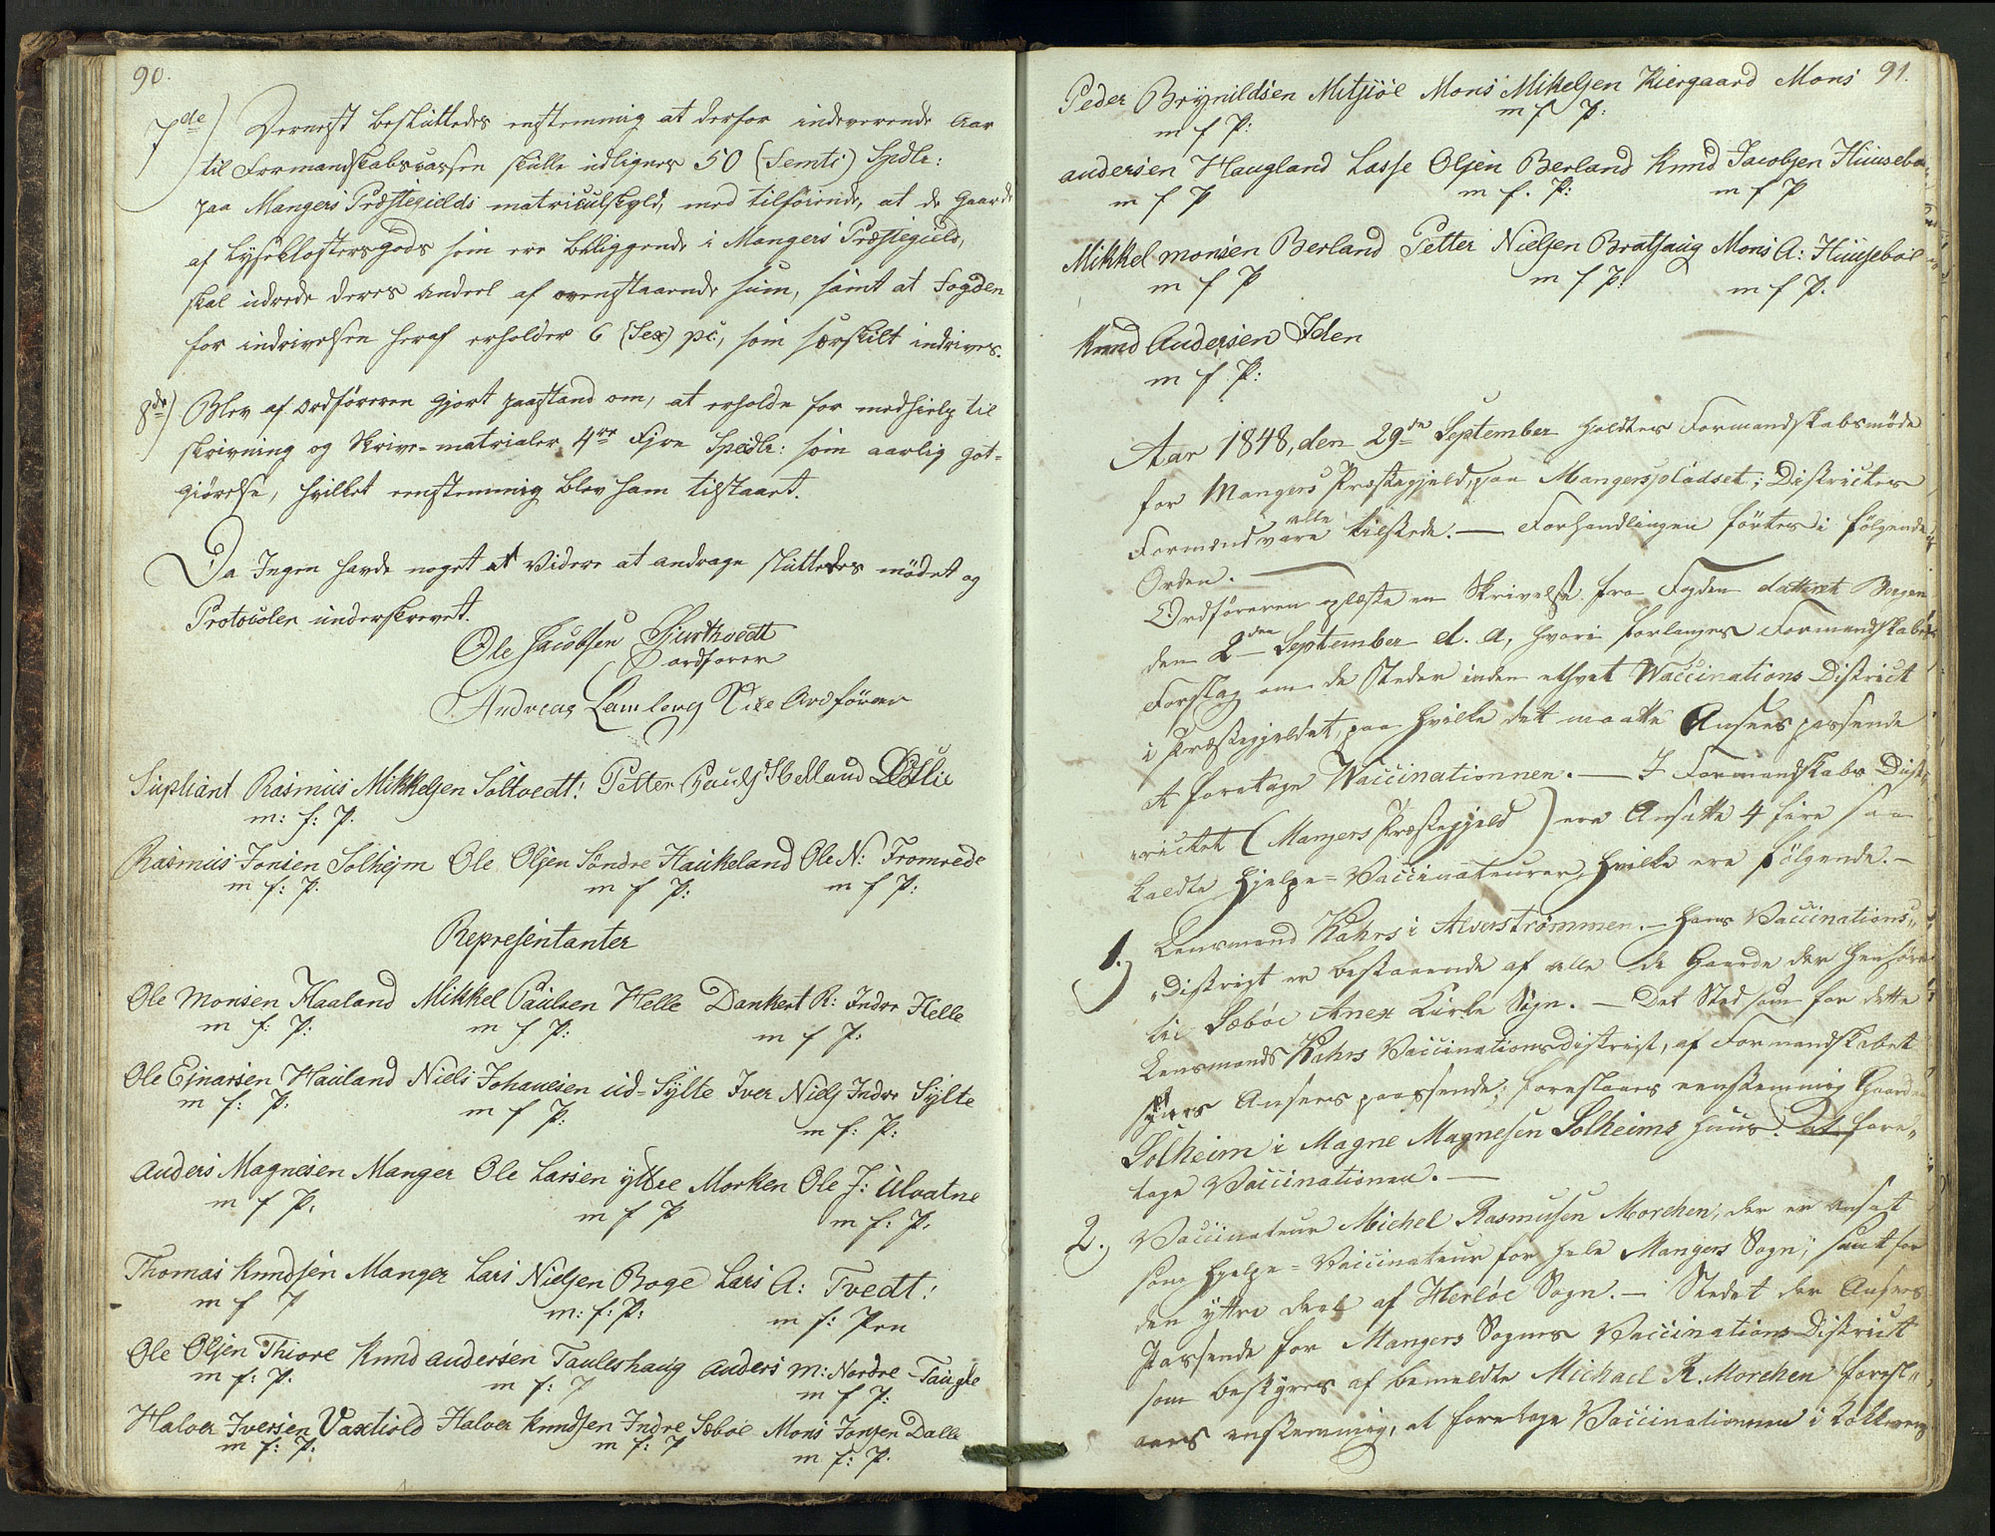 90.
7de) Dernæst besluttedes enstemmig at derfor indeværende Aar
til Formandskabscassen skulle udlignes 50 (femti) Spdlr:
paa Mangers Præstegields matriculskyld, med tilføiende, at de Gaarde
af Lyseklostersgods som ere beliggende i Mangers Præstegield,
skal udrede deres andeel af ovenstaaende sum, samt at Fogden
for indrivelsen heraf erholder 6 (Sex) pc, som særskilt indrives.
8de) Blev af ordføreren gjort paastand om, at erholde for medhielp til
skrivning og Skrive-matrialer 4re Fire Spedlr: som aarlig got-
giørelse, hvilket eenstemmig blev ham tilstaaet.
Da Ingen havde noget at videre at andrage sluttedes mødet og
Protocolen underskrevet.
Ole Jacobsen Hjurthvedt
ordfører
Andreas Lamberg Vice Ordfører
Supliant Rasmus Mikkelsen Soltvedt! Petter Pauls Helland
m: f: P.
Rasmus Jonsen Solhejm Ole Olsen Søndre Haukeland Ole N: Fromrede
m f: P: m f P: m f P:
Repræsentanter
Ole Monsen Haaland Mikkel Paulsen Helle Dankert R: Indre Helle
m f: P: m f P: m f P:
Ole Ejnarsen Hauland Niels Johanesen ud-Sylte Iver Niels Indre Sylte
m f: P: m f P: m f: P:
Anders Magnesen Manger Ole Larsen yttre Morken Ole J: Ulvatne
m f P. m f P m f: P.
Thomas Knudsen Manger Lars Nielsen Boge Lars A: Tvedt!
m f P m: f: P: m f: Pen
Ole Olsen Thiore Knud andersen Tauleshaug anders M: Nordre-Taugle
m f: P. m f: P m f P:
Halvor Iversen Vaxtiold Halver Knudsen Indre Sæbøe Mons Jonsen Dalle
m f: P: m f: P m f: P.
91.
Peder Brynildsen Mitsiøe Mons Mikelsen Kiergaard Mons
m f P: m f P:
andersen Haugland Lasse Olsen Berland Knud Jacobsen Huusebø
m f P m f. P: m f P
Mikkel monsen Berland Petter Nielsen Bratshaug Mons A: Huusebøe
m f P m f P: m f P.
Knud Andersen Iden
m f P:
Aar 1848, den 29de September holdtes Formandskabsmøde
for Mangers Præstegjeld, paa Mangerspladset; Districtes
Formænd vare alle tilstede. — Forhandlingen førtes i følgende
Orden. —
Ordføreren oplæste en Skrivelse fra Fogden datteret Bergen
den 2den September d. A, hvori forlanges Formandskabets
Forslag om de Steder inden ethvert Vaccinations District
i Præstegjeldet, paa hvilke det maatte Ansees passende
at foretage Vaccinationnen. — I Formandskabs Dist-
rictet (Mangers Præstegjeld) ere Ansatte 4 fire saa
kaldte Hjelpe-Vaccinateurer, hvilke ere følgende. —
1.) Lensmand Kahrs i Alverstrømmen. — Hans Vaccinations„
„District er bestaaende af alle de Gaarde der henhøre
til Sæbøe Anex Kirke Sogn. — Det Sted som for dette
Lensmands Kahrs Vaccinationsdistrict, af Formandskabet
synes Ansees passende; foreslaaes eenstemmig Gaarden
Solheim i Magne Magnesen Solheims Huus. at fore„
tage Vaccinationen. —
2.) Vaccinateur Michel Rasmusen Morchen; der er ansat
som Hjelpe-Vaccinateur for hele Mangers Sogn; samt for
den yttre deel af Herløe Sogn. — Stedet der Ansees
Passende for Mangers Sognes Vaccinations District
som bestyres af bemeldte Michael R. Morchen foresl„
aaes enstemmig, at foretage Vaccinationnen i